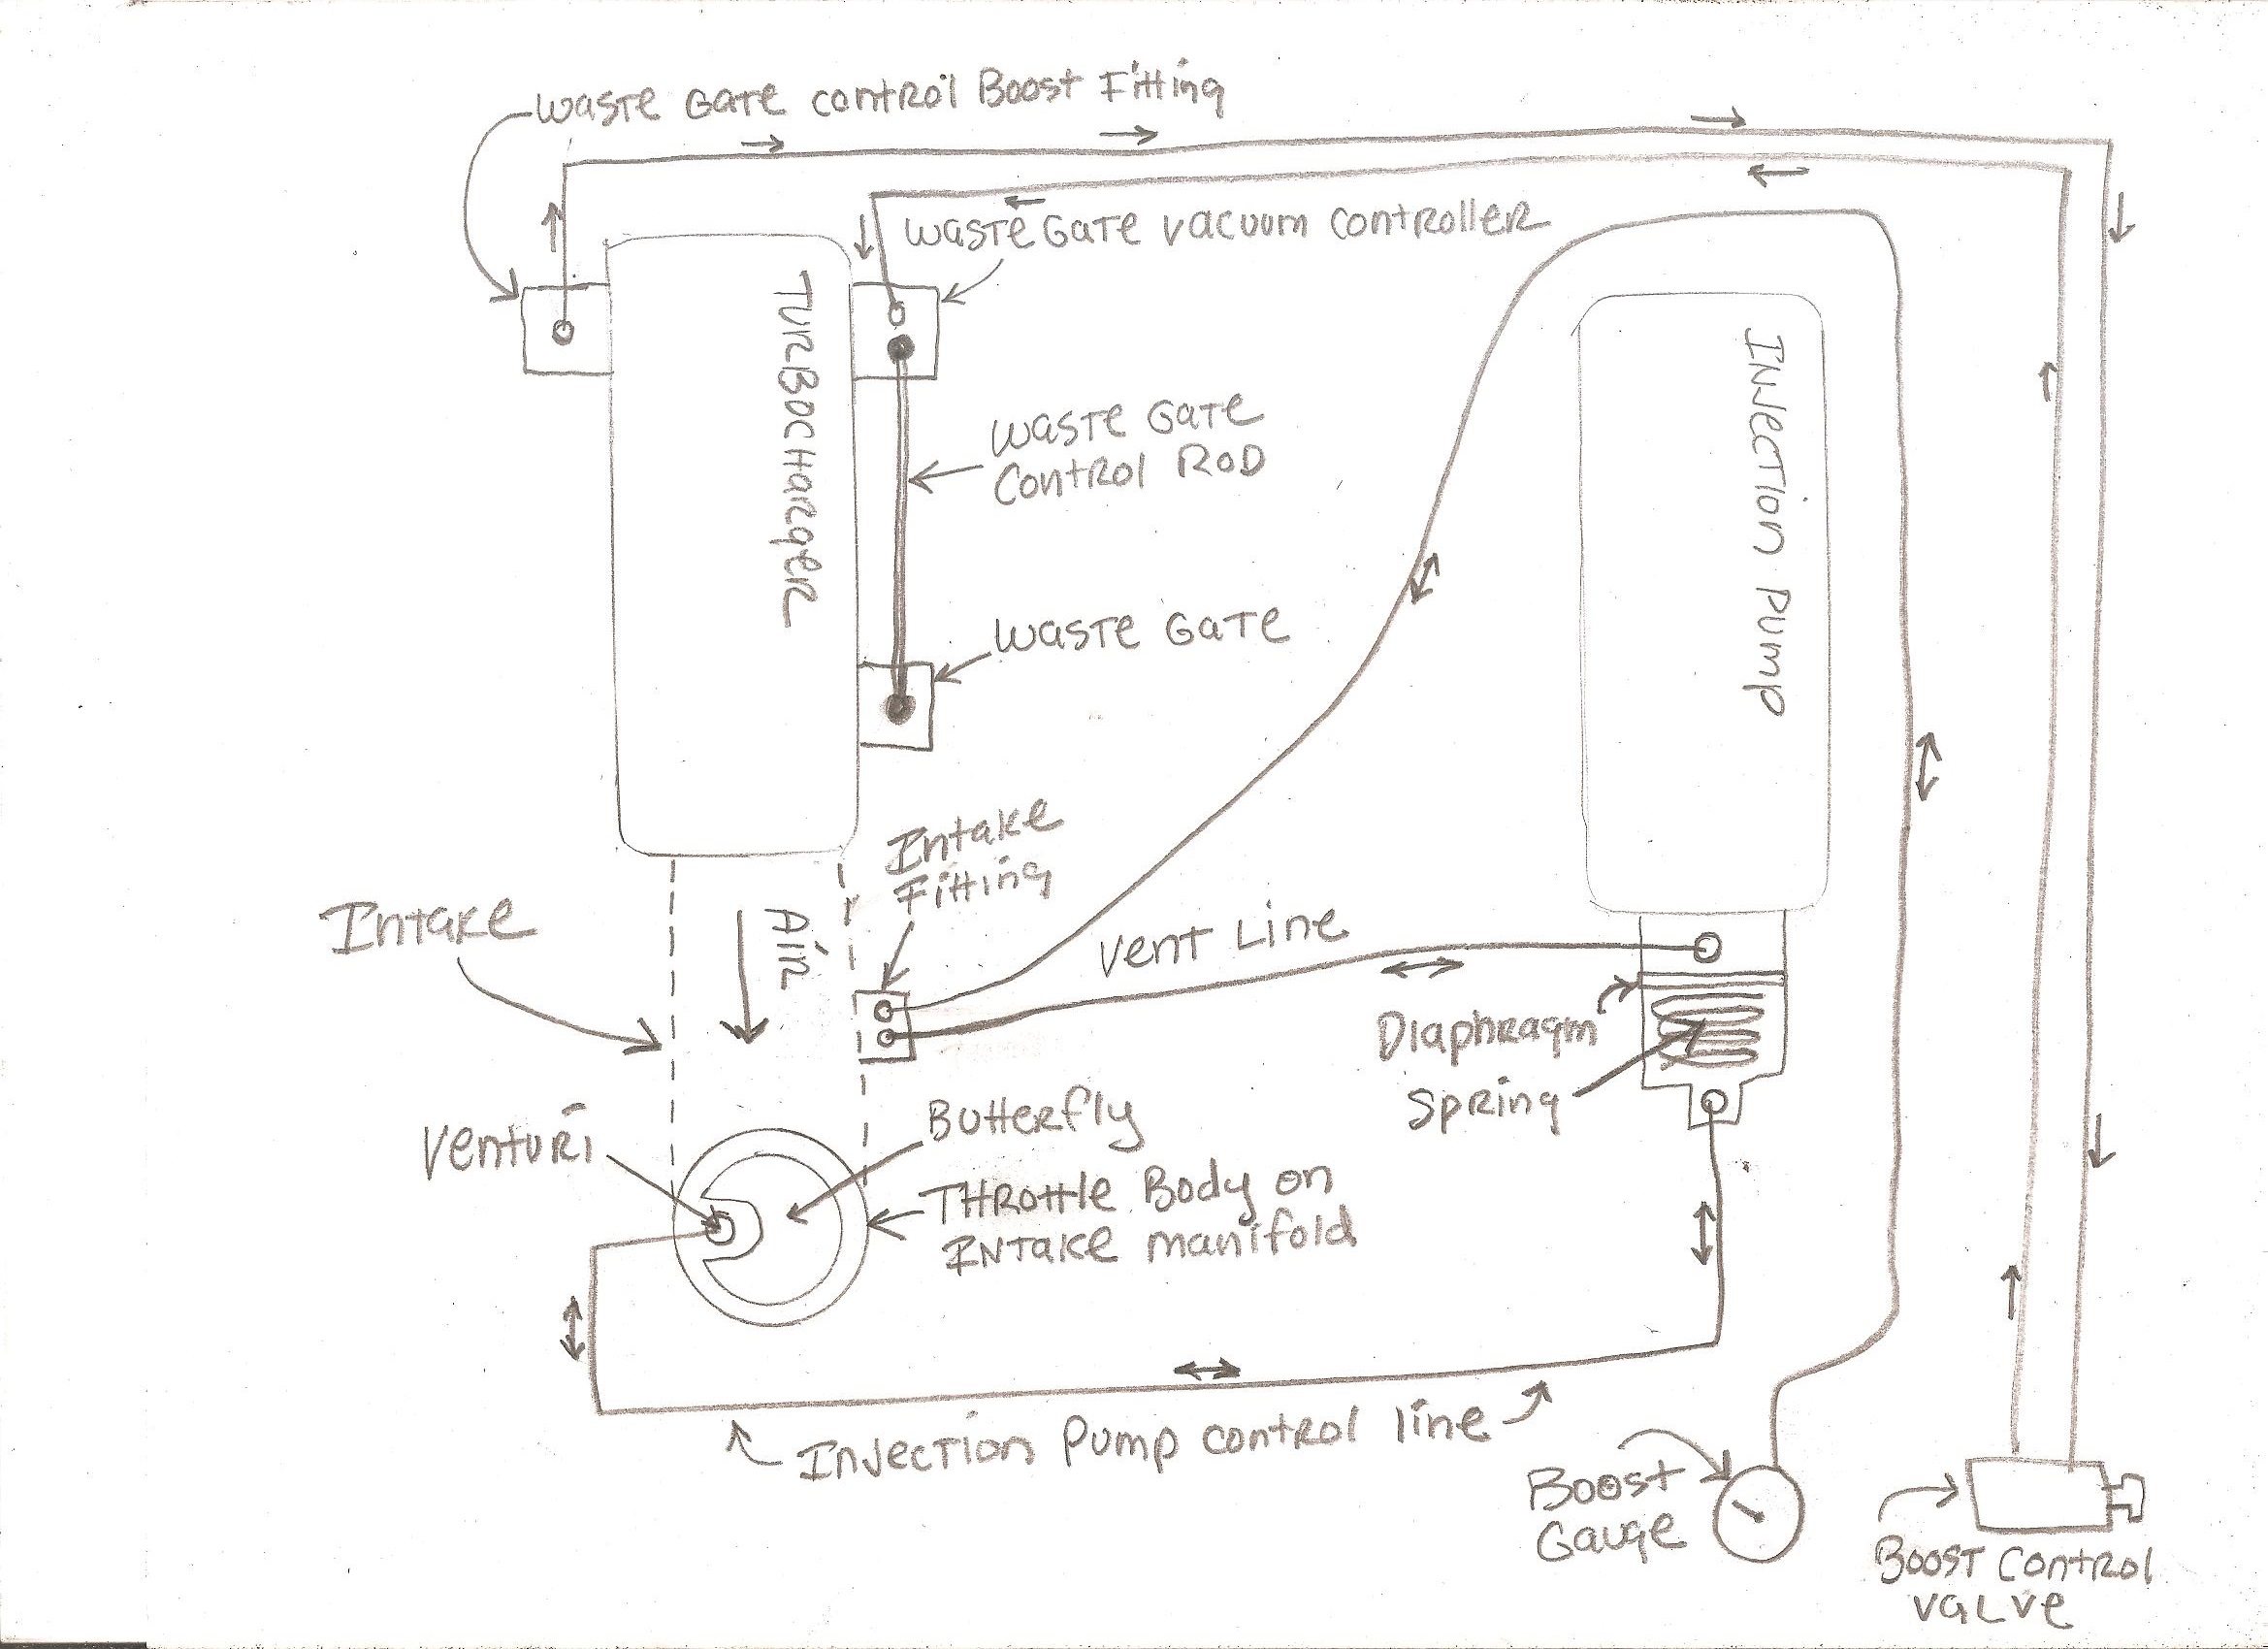 Waste Gate Control Boost Fitting
Waste Gate Vacuum Controller
Turbocharger
Injection Pump
Waste Gate
Control Rod
Waste Gate
Intake
Fitting
Intake
Air
Vent Line
Diaphragm
Spring
Venturi
Butterfly
Throttle Body on
Intake manifold
Injection Pump control line
Boost
Gauge
Boost Control
Valve